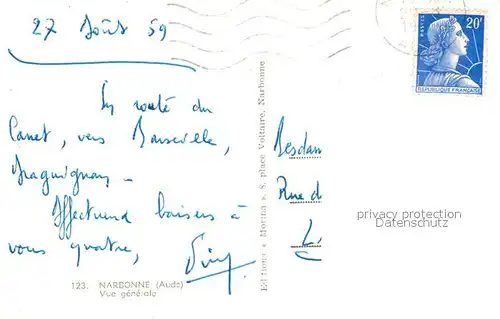 27 Août 59
En route du
Canet, vers Marseille,
Draguignan —
Affectueux baisers à
vous quatre,
123. NARBONNE (Aude)
Vue générale
Editions « Morina », 8, place Voltaire, Narbonne
POSTES
20F
REPUBLIQUE FRANÇAISE
Mesdam
Rue d
privacy protection
Datenschutz